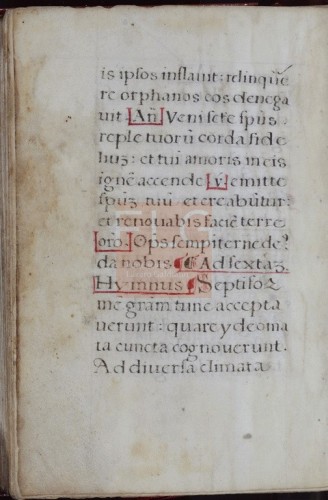 is ipsos inflauit: relinquē
re orphanos eos denega
uit. Añ. Veni scte spũs.
reple tuorũ corda fide
liuʒ: et tui amoris in eis
ignẽ accende. ℣. emitte
spũʒ tuũ et creabũtur:
et renouabis faciẽ terre
orõ. Oĩps sempiterne de⁹
da nobis. ¶ Ad sextaʒ.
Hymnus. Septifor
me gram̃ tunc accepta
uerunt: quare ydeoma
ta cuncta cognouerunt.
Ad diuersa climata